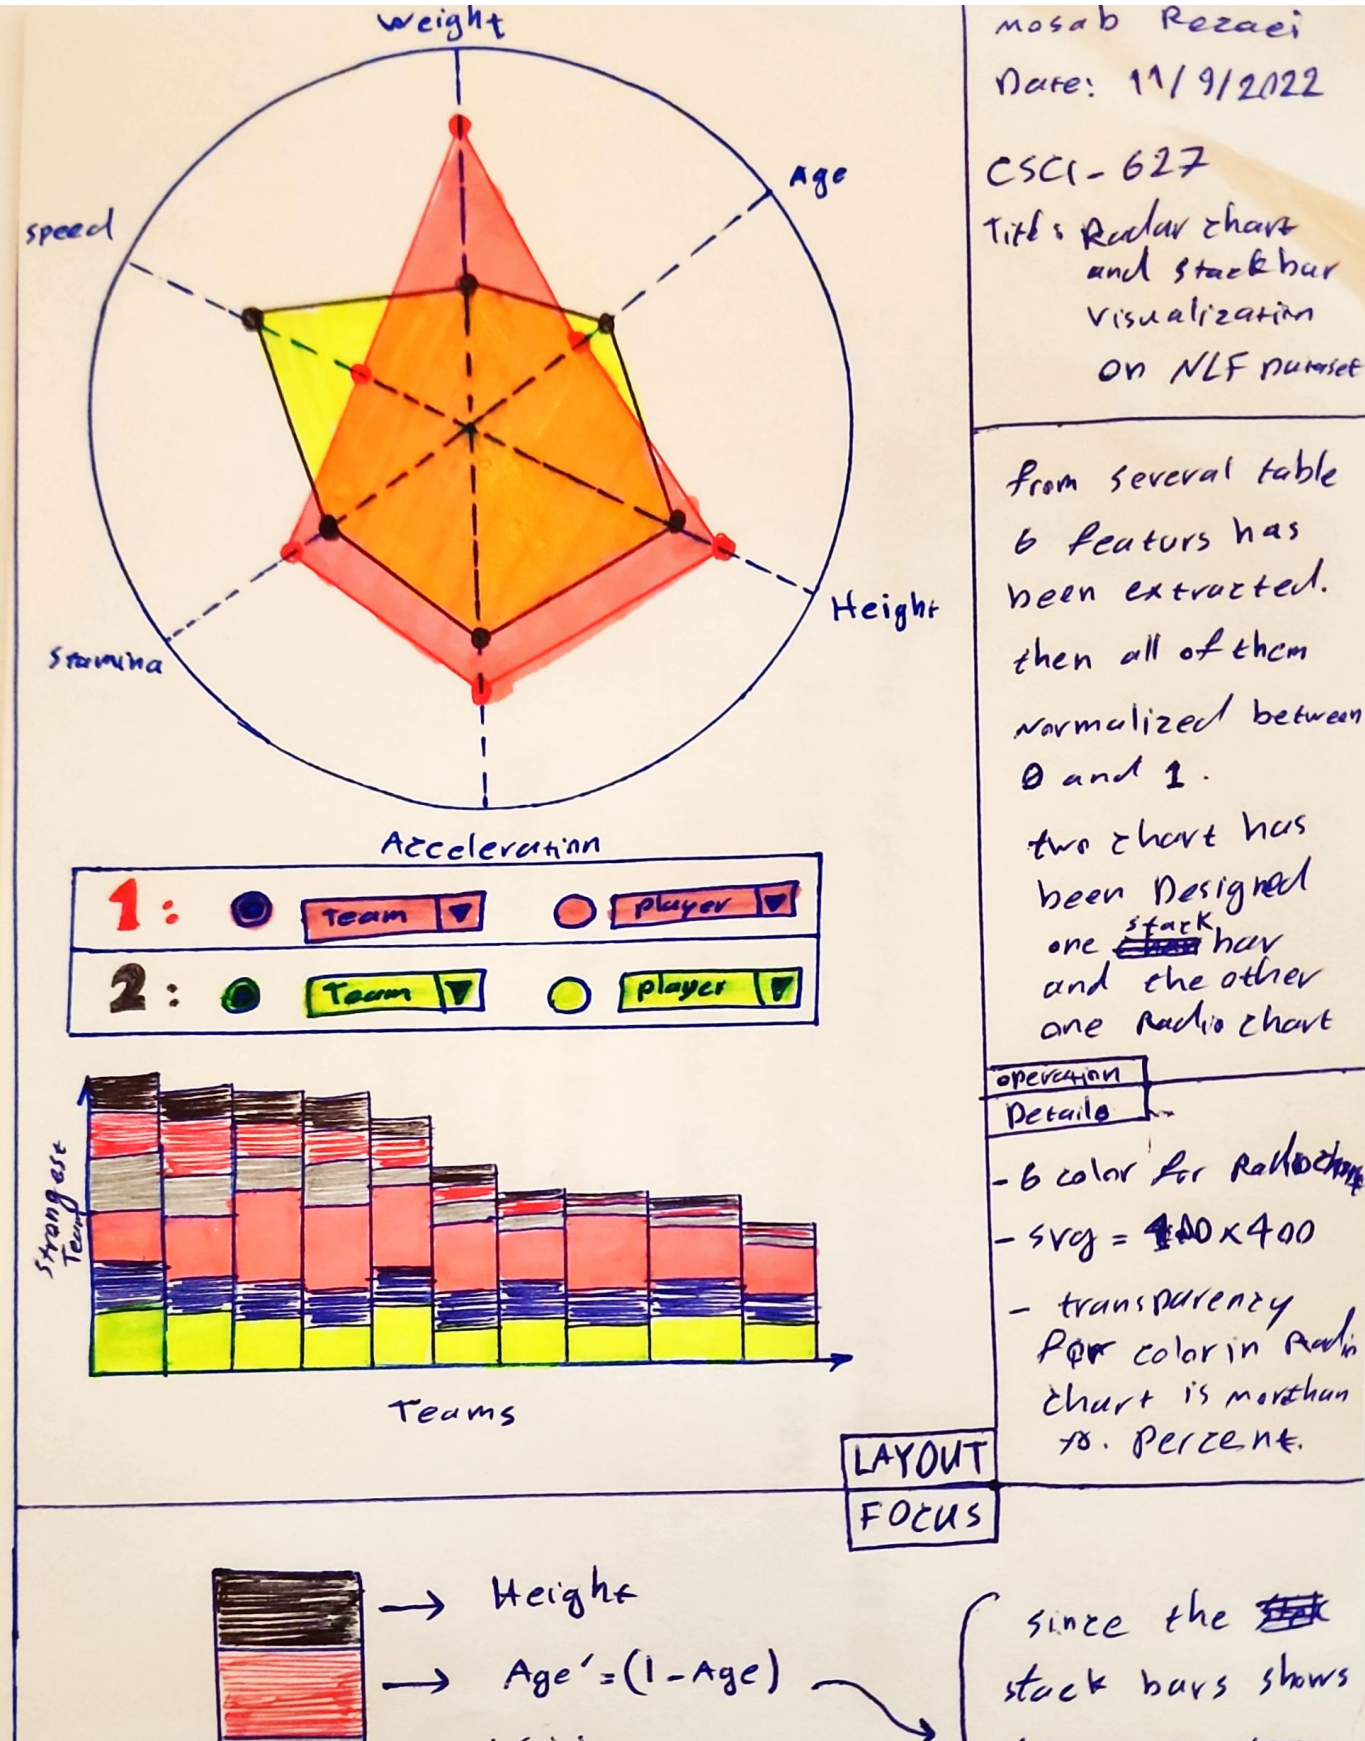 Weight
Age
speed
Height
Stamina
Acceleration
1: Team player
2: Team player
Strangest
Team
Teams
LAYOUT
FOCUS
Height
Age' = (1 - Age)
mosab Rezaei
Date: 11/9/2022
CSCI - 627
Title: Radar chart
and stack bar
visualization
on NLF Dataset
from several table
6 featurs has
been extracted.
then all of them
Normalized between
0 and 1.
two chart has
been Designed
one stack bar
and the other
one Radio chart
operation
Details
- 6 color for Radio
- svg = 400 x 400
- transparency
for color in Radio
chart is morthan
Percent.
since the
stack bars shows